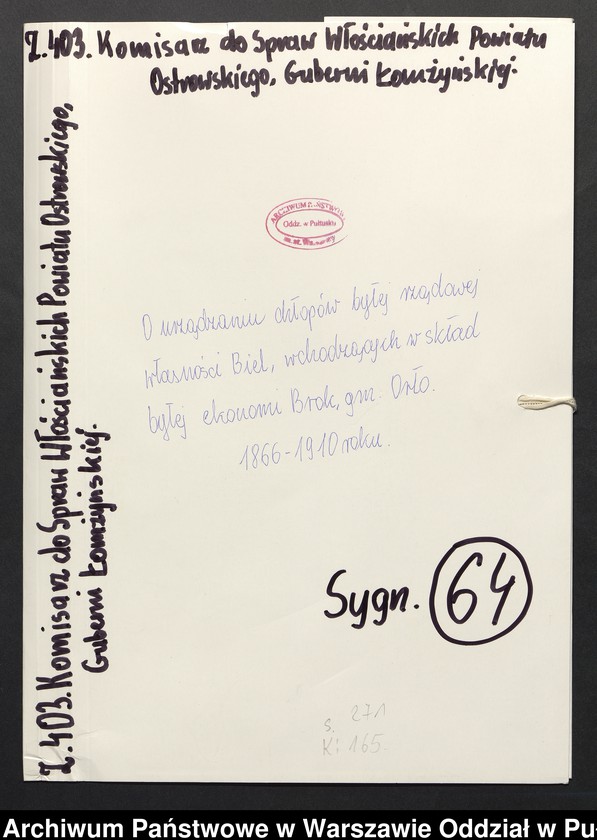 Z.403. Komisarz do Spraw Włościańskich Powiatu
Ostrowskiego, Guberni Łomżyńskiej.
Z.403. Komisarz do Spraw Włościańskich Powiatu Ostrowskiego,
Guberni Łomżyńskiej.
ARCHIWUM PAŃSTWOWE
Oddz. w Pułtusku
m. st. Warszawy
O urządzaniu chłopów byłej rządowej
własności Biel, wchodzących w skład
byłej ekonomi Brok, gm. Orło.
1866-1910 roku.
Sygn. 64
s. 271
K: 165.
Archiwum Państwowe w Warszawie Oddział w Pu